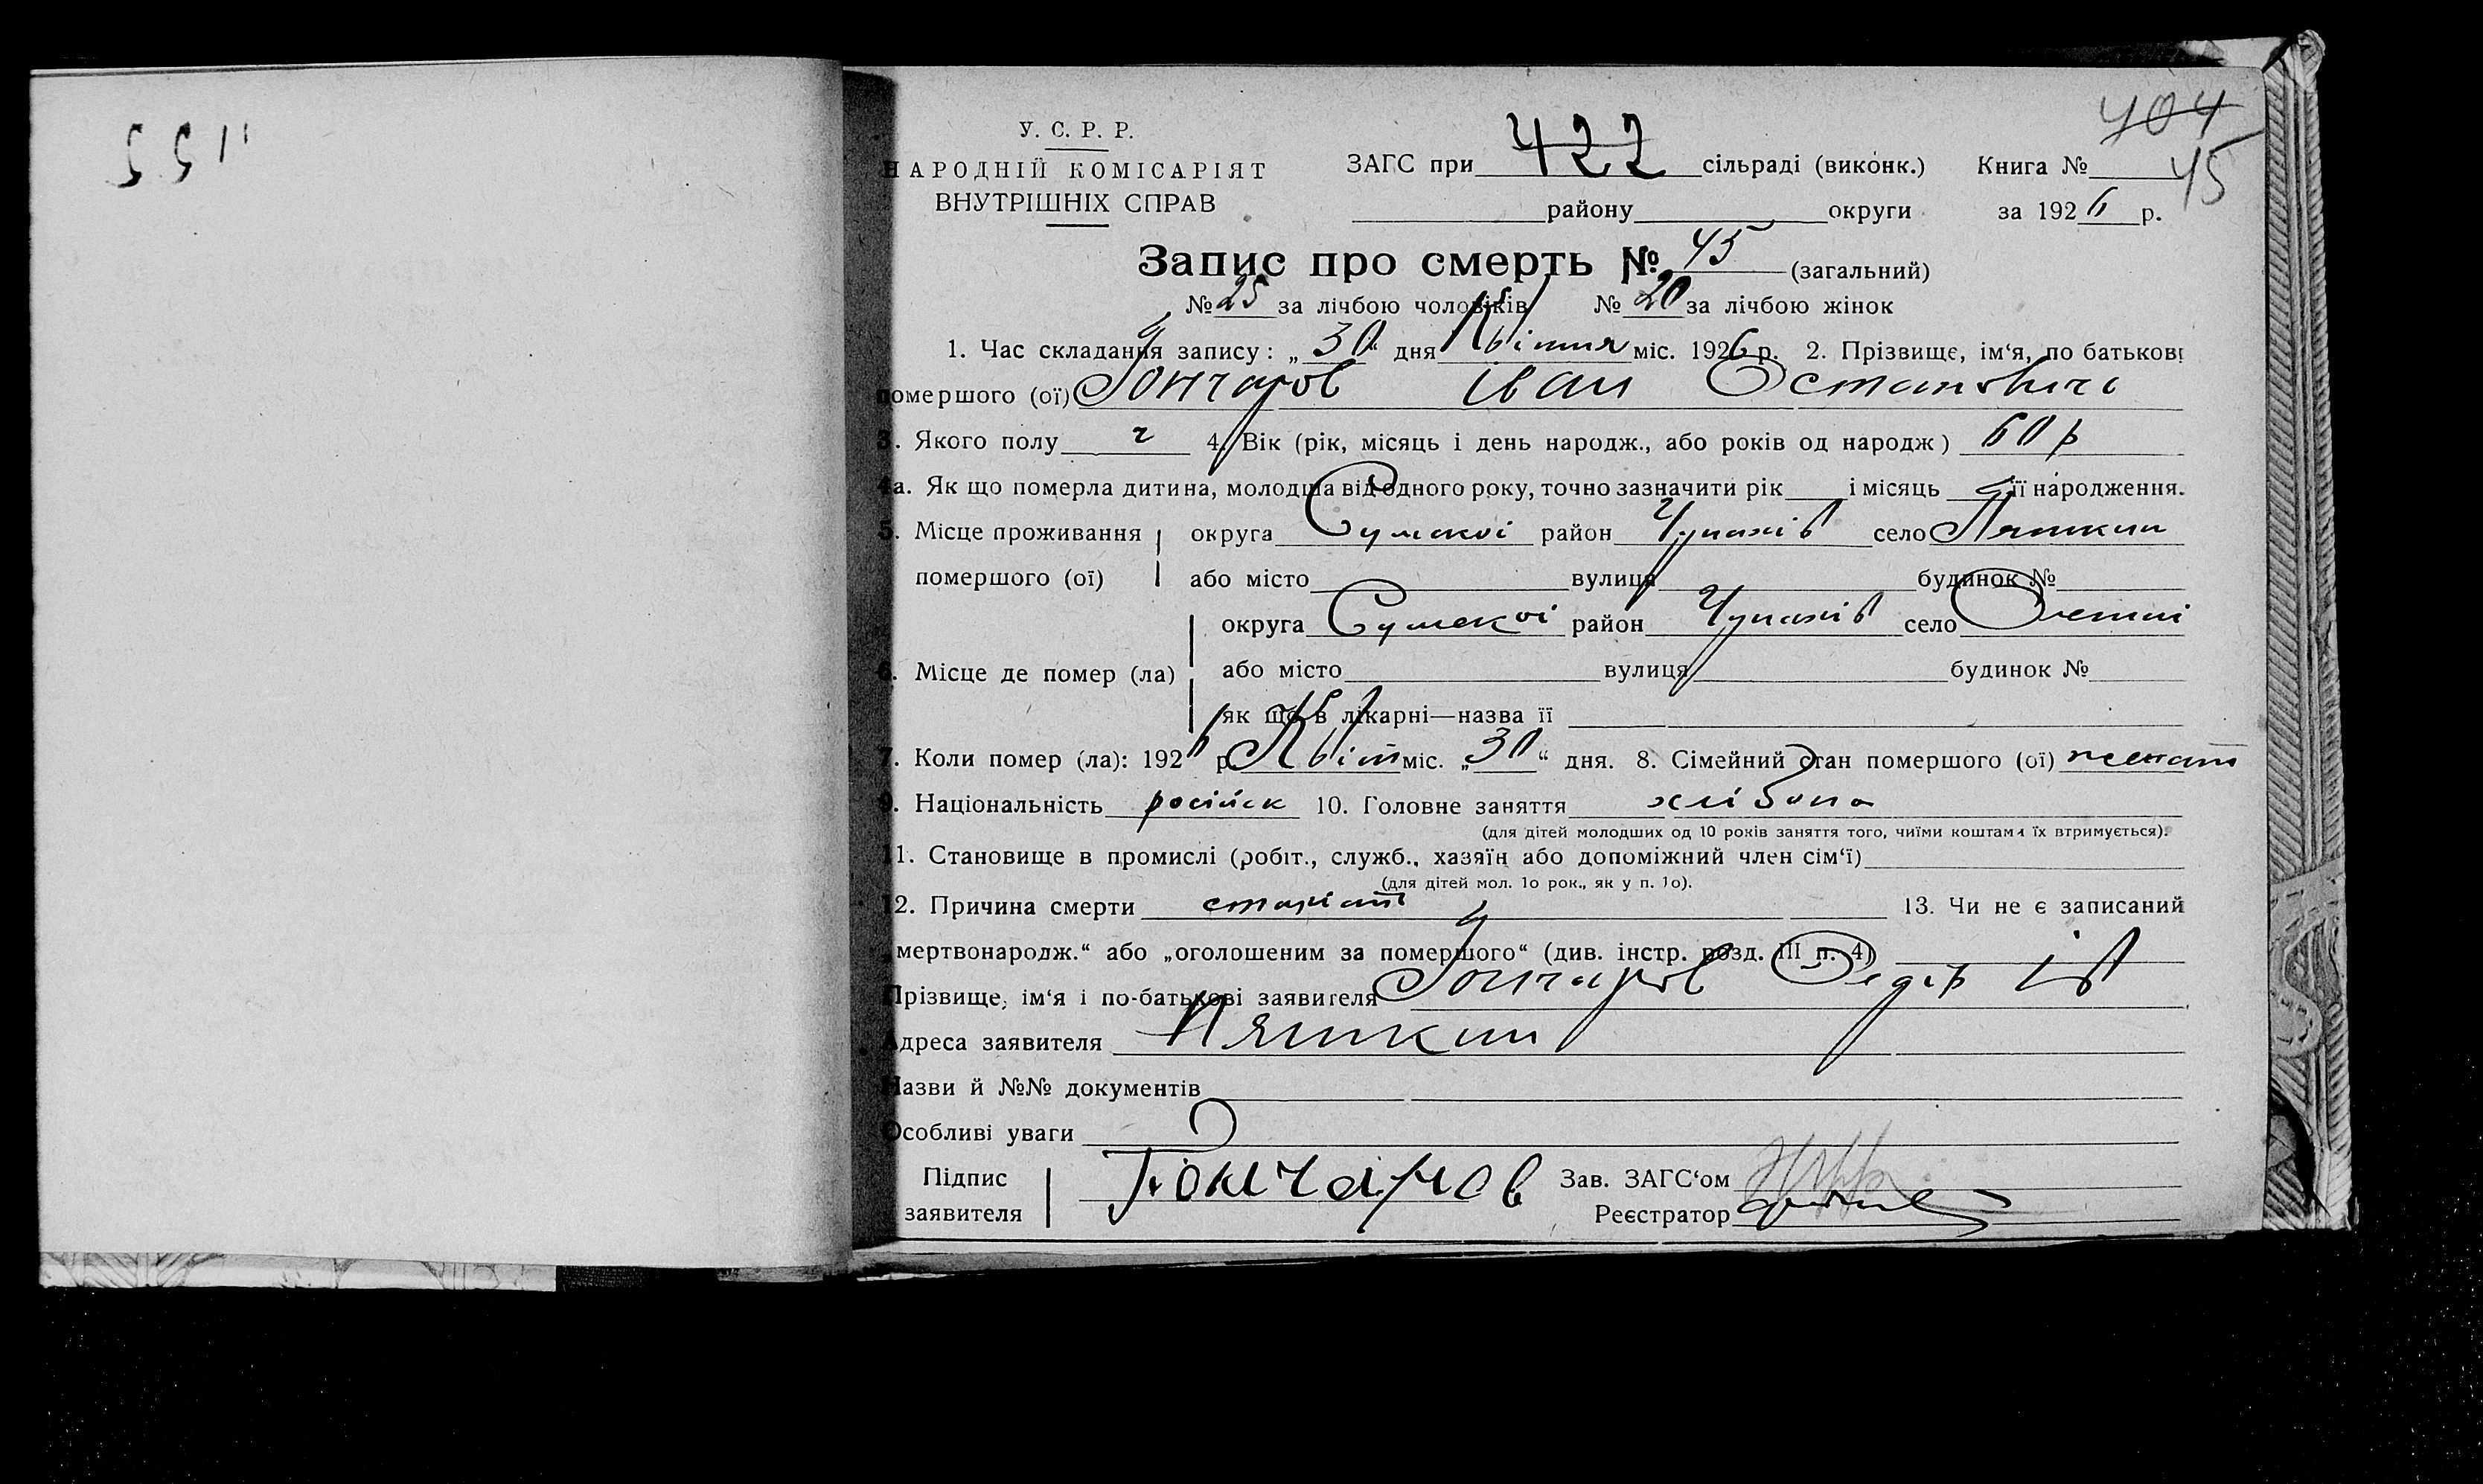 У. С. Р. Р.
НАРОДНІЙ КОМІСАРІЯТ
ВНУТРІШНІХ СПРАВ
404
ЗАГС при 422 сільраді (виконк.) Книга № 45
району округи за 1926 р.
Запис про смерть № 45 (загальний)
№ 25 за лічбою чоловіків № 20 за лічбою жінок
1. Час складання запису: „30“ дня Квітня міс. 1926 р. 2. Прізвище, ім‘я, по батькові
помершого (ої) Гончаров Іван Остапович
3. Якого полу ч 4. Вік (рік, місяць і день народж., або років од народж) 60 р
4а. Як що померла дитина, молодша від одного року, точно зазначити рік і місяць її народження.
5. Місце проживання округа Сумскої район Чупахів село Пяткин
помершого (ої) або місто вулиця будинок №
округа Сумскої район Чупахів село
6. Місце де помер (ла) або місто вулиця будинок №
як що в лікарні—назва її
7. Коли помер (ла): 1926 р. Квіт міс. „30“ дня. 8. Сімейний стан помершого (ої) женат
9. Національність російск 10. Головне заняття хлібопа
(для дітей молодших од 10 років заняття того, чиїми коштами їх втримується).
11. Становище в промислі (робіт., служб., хазяїн або допоміжний член сім‘ї)
(для дітей мол. 1о рок., як у п. 1о).
12. Причина смерти старіст 13. Чи не є записаний
„мертвонародж.“ або „оголошеним за помершого“ (див. інстр. розд. III п. 4)
Прізвище, ім‘я і по-батькові заявителя Гончаров Федір Ів
Адреса заявителя Пяткин
Назви й №№ документів
Особливі уваги
Підпис заявителя Гончаров Зав. ЗАГС‘ом
Реєстратор